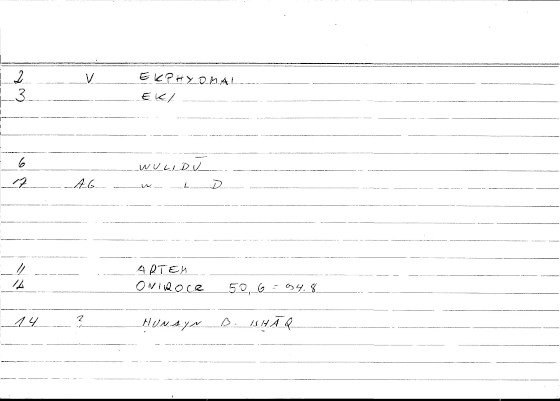 2 V EKPHYOMAI
3 EK/
6 WULIDŪ
17 AG W L D
11 ARTEM
12 ONIROCR 50,6 = 94.8
14 ? ḤUNAYN B. ISḤĀQ